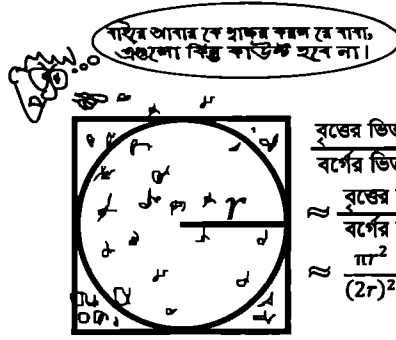 বাইরে আবার কে স্বাক্ষর করল রে বাবা,
এগুলো কিন্তু কাউন্ট হবে না।
r
বৃত্তের
বর্গের
≈ বৃত্তের
বর্গের
≈ πr²
(2r)²